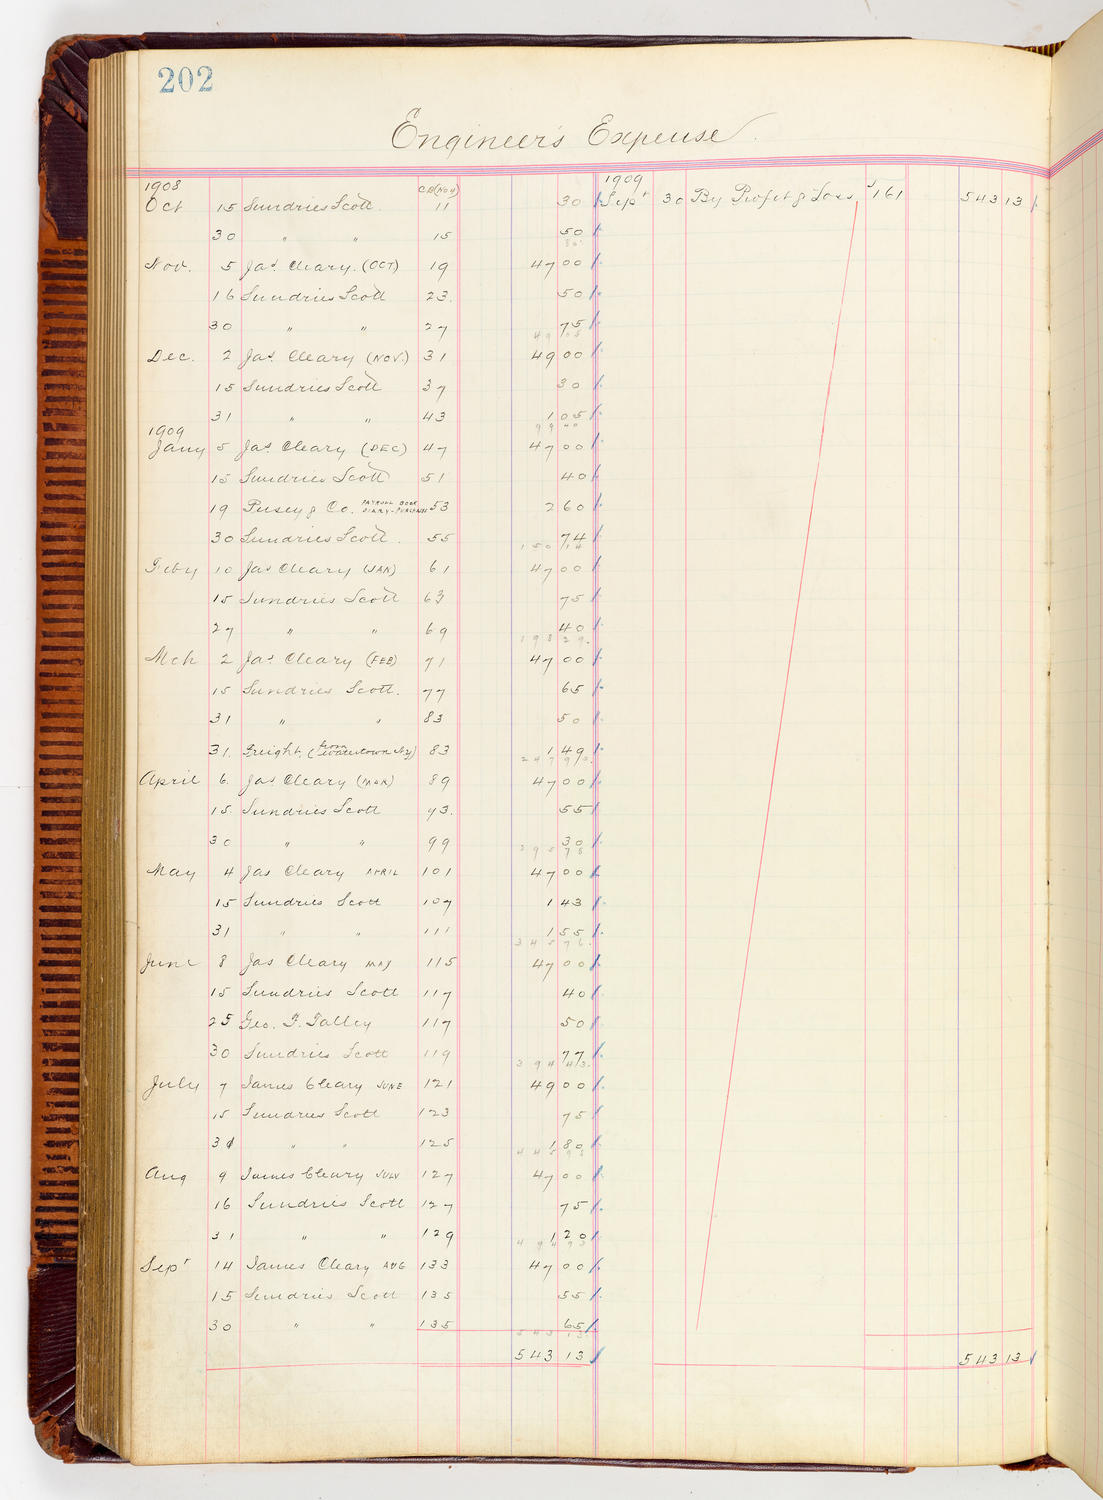 202
Engineer's Expense
1908 C.B. (No 4) 1909
Oct 15 Sundries Scott 11 30 Sept 30 By Profit & Loss J 161 543 13
30 " " 15 50
80
Nov. 5 Jas. Cleary. (OCT) 19 47 00
16 Sundries Scott 23. 50
30 " " 27 75
49 05
Dec. 2 Jas. Cleary (NOV.) 31 49 00
15 Sundries Scott 37 30
31 " " 43 1 05
99 40
1909
Jany 5 Jas. Cleary (DEC) 47 47 00
15 Sundries Scott 51 40
19 Pusey & Co. PAYROLL BOOK 53 2 60
30 Sundries Scott. 55 74
150 14
Feby 10 Jas Cleary (JAN) 61 47 00
15 Sundries Scott 63 75
27 " " 69 40
198 29
Mch 2 Jas. Cleary (FEB) 71 47 00
15 Sundries Scott. 77 65
31 " " 83 50
31. Freight. (from Watertown N.Y.) 83 1 49
247 93
April 6. Jas Cleary (MAR) 89 47 00
15. Sundries Scott 93. 55
30 " " 99 30
295 78
May 4 Jas Cleary APRIL 101 47 00
15 Sundries Scott 107 1 43
31 " " 111 1 55
345 76
June 8 Jas Cleary MAY 115 47 00
15 Sundries Scott 117 40
25 Geo. F. Talley 117 50
30 Sundries Scott 119 77
394 43
July 7 James Cleary JUNE 121 49 00
15 Sundries Scott 123 75
31 " " 125 1 80
445 98
Aug 9 James Cleary JULY 127 47 00
16 Sundries Scott 127 75
31 " " 129 1 20
494 93
Sept 14 James Cleary AUG 133 47 00
15 Sundries Scott 135 55
30 " " 135 65
543 13
543 13 543 13